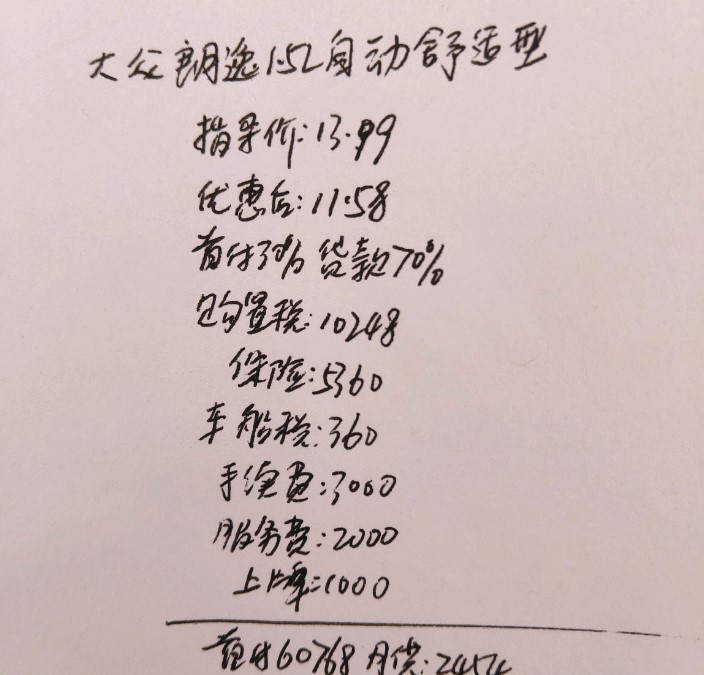 大众朗逸1.5L自动舒适型
指导价:13.99
优惠后:11.58
首付30% 贷款70%
购置税:10248
保险:5360
车船税:360
手续费:3000
服务费:2000
上牌:1000
首付60768 月供:2454